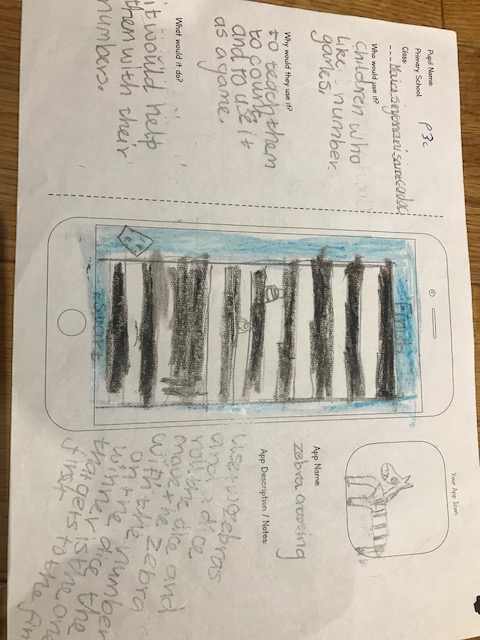 Pupil Name
Primary School
Class
P3c
Who would use it?
children who
like number
games.
Why would they use it?
to teach them
to count
and to use it
as a game.
What would it do?
it would help
them with their
numbers.
Finish
start
Your App Icon
App Name:
zebra crossing
App Description / Notes:
use two zebras
and a dice
roll the dice and
move the zebra
with the number
on the dice
winner is the
that gets to the
first